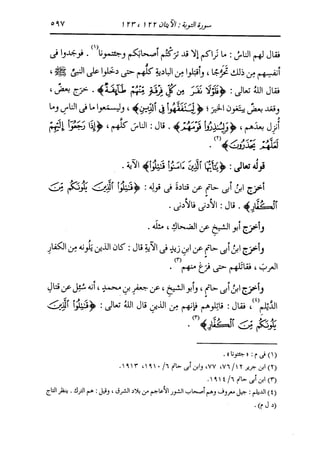 سورة التوبة : الآيتان ١٢٢ ، ١٢٣ ٥٩٧
فقال لهم الناسُ : ما نراكم إلا قد تركتُم أصحابَكم وجئتمونا(١) . فوجدوا فى
أنفسِهم من ذلك تحرُّجًا ، وأقبلوا من البادية كلُّهم حتى دخلوا على النبىِّ ﷺ ،
فقال اللهُ تعالى : ﴿فَلَوْلَا نَفَرَ مِن كُلِّ فِرْقَةٍ مِّنْهُمْ طَآئِفَةٌ﴾ . خرَج بعضٌ ،
وقعَد بعضٌ يبتغون الخيرَ ؛ ﴿لِّيَتَفَقَّهُوا۟ فِى ٱلدِّينِ﴾ ، وليسمَعوا ما فى الناس وما
أُنزل بعدَهم ، ﴿وَلِيُنذِرُوا۟ قَوْمَهُمْ﴾ . قال : الناس كلهم ، ﴿إِذَا رَجَعُوٓا۟ إِلَيْهِمْ
لَعَلَّهُمْ يَحْذَرُونَ﴾(٢) .
قولُه تعالى : ﴿يَٰٓأَيُّهَا ٱلَّذِينَ ءَامَنُوا۟ قَٰتِلُوا۟﴾ الآية .
أخرَج ابنُ أبى حاتمٍ عن قتادةَ فى قوله : ﴿قَٰتِلُوا۟ ٱلَّذِينَ يَلُونَكُم مِّنَ
ٱلْكُفَّارِ﴾ . قال : الأدنى فالأدنى .
وأخرَج أبو الشيخِ عن الضحاكِ ، مثلَه .
وأخرَج ابنُ أبى حاتمٍ عن ابنِ زيدٍ فى الآيةِ قال : كان الذين يَلُونه من الكفارِ
العربَ ، فقاتَلهم حتى فرَغ منهم(٣) .
وأخرَج ابنُ أبى حاتمٍ ، وأبو الشيخِ ، عن جعفرِ بنِ محمدٍ ، أنه سُئل عن قتالِ
الدَّيْلَمِ(٤) ، فقال : قاتِلوهم فإنهم من الذين قال اللهُ تعالى : ﴿قَٰتِلُوا۟ ٱلَّذِينَ
يَلُونَكُم مِّنَ ٱلْكُفَّارِ﴾(٣) .
(١) فى م : « جئتونا » .
(٢) ابن جرير ١٢/ ٧٦، ٧٧، وابن أبى حاتم ٦/ ١٩١٠، ١٩١٣.
(٣) ابن أبى حاتم ٦/ ١٩١٤.
(٤) الديلم : جيل معروف وهم أصحاب الشور الأعاجم من بلاد الشرق ، وقيل : هم الترك . ينظر التاج
(د ل م) .